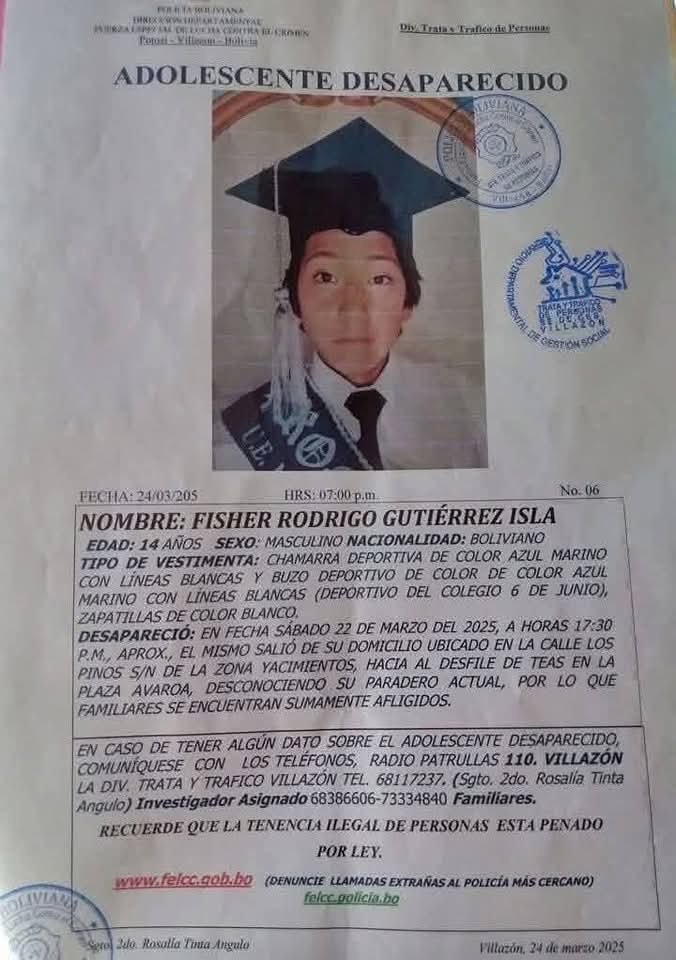 POLICIA BOLIVIANA
DIRECCION DEPARTAMENTAL
FUERZA ESPECIAL DE LUCHA CONTRA EL CRIMEN
Potosí - Villazon - Bolivia
Div. Trata y Trafico de Personas
ADOLESCENTE DESAPARECIDO
BOLIVIANA
TRATA Y TRAFICO
DE PERSONAS
TRATA Y TRAFICO
DE PERSONAS
SE.DE.GES
VILLAZÓN
DEPARTAMENTAL DE GESTIÓN SOCIAL
U.E.
FECHA: 24/03/205 HRS: 07:00 p.m. No. 06
NOMBRE: FISHER RODRIGO GUTIÉRREZ ISLA
EDAD: 14 AÑOS SEXO: MASCULINO NACIONALIDAD: BOLIVIANO
TIPO DE VESTIMENTA: CHAMARRA DEPORTIVA DE COLOR AZUL MARINO
CON LÍNEAS BLANCAS Y BUZO DEPORTIVO DE COLOR DE COLOR AZUL
MARINO CON LÍNEAS BLANCAS (DEPORTIVO DEL COLEGIO 6 DE JUNIO),
ZAPATILLAS DE COLOR BLANCO.
DESAPARECIÓ: EN FECHA SÁBADO 22 DE MARZO DEL 2025, A HORAS 17:30
P.M., APROX., EL MISMO SALIÓ DE SU DOMICILIO UBICADO EN LA CALLE LOS
PINOS S/N DE LA ZONA YACIMIENTOS, HACIA AL DESFILE DE TEAS EN LA
PLAZA AVAROA, DESCONOCIENDO SU PARADERO ACTUAL, POR LO QUE
FAMILIARES SE ENCUENTRAN SUMAMENTE AFLIGIDOS.
EN CASO DE TENER ALGÚN DATO SOBRE EL ADOLESCENTE DESAPARECIDO,
COMUNÍQUESE CON LOS TELÉFONOS, RADIO PATRULLAS 110. VILLAZÓN
LA DIV. TRATA Y TRAFICO VILLAZÓN TEL. 68117237. (Sgto. 2do. Rosalía Tinta
Angulo) Investigador Asignado 68386606-73334840 Familiares.
RECUERDE QUE LA TENENCIA ILEGAL DE PERSONAS ESTA PENADO
POR LEY.
www.felcc.gob.bo (DENUNCIE LLAMADAS EXTRAÑAS AL POLICÍA MÁS CERCANO)
felcc.policia.bo
BOLIVIANA
Sgto. 2do. Rosalía Tinta Angulo
Villazón, 24 de marzo 2025